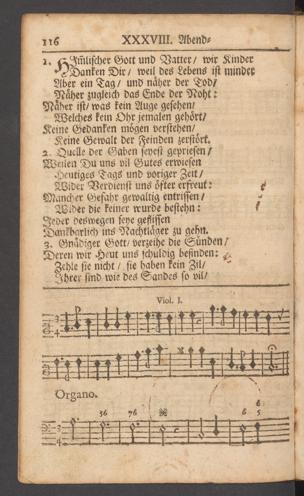 116 XXXVIII. Abend-
1. Himlischer Gott und Vatter/ wir Kinder
Danken Dir/ weil des Lebens ist minder
Aber ein Tag/ und näher der Tod/
Näher zugleich das Ende der Noht:
Näher ist/ was kein Auge gesehen/
Welches kein Ohr jemalen gehört/
Keine Gedanken mögen verstehen/
Keine Gewalt der Feinden zerstört.
2. Quelle der Gaben seyest gepriesen/
Weilen Du uns vil Gutes erwiesen
Heutiges Tags und voriger Zeit/
Wider Verdienst uns öfter erfreut:
Mancher Gefahr gewaltig entrissen/
Wider die keiner wurde bestehn:
Jeder deswegen seye geflissen
Dankbarlich ins Nachtläger zu gehn.
3. Gnädiger Gott/ verzeihe die Sünden/
Deren wir Heut uns schuldig befinden:
Zehle sie nicht/ sie haben kein Zil/
Ihrer sind wie des Sandes so vil/
Viol. I.
Organo.
56 76 6
6 5